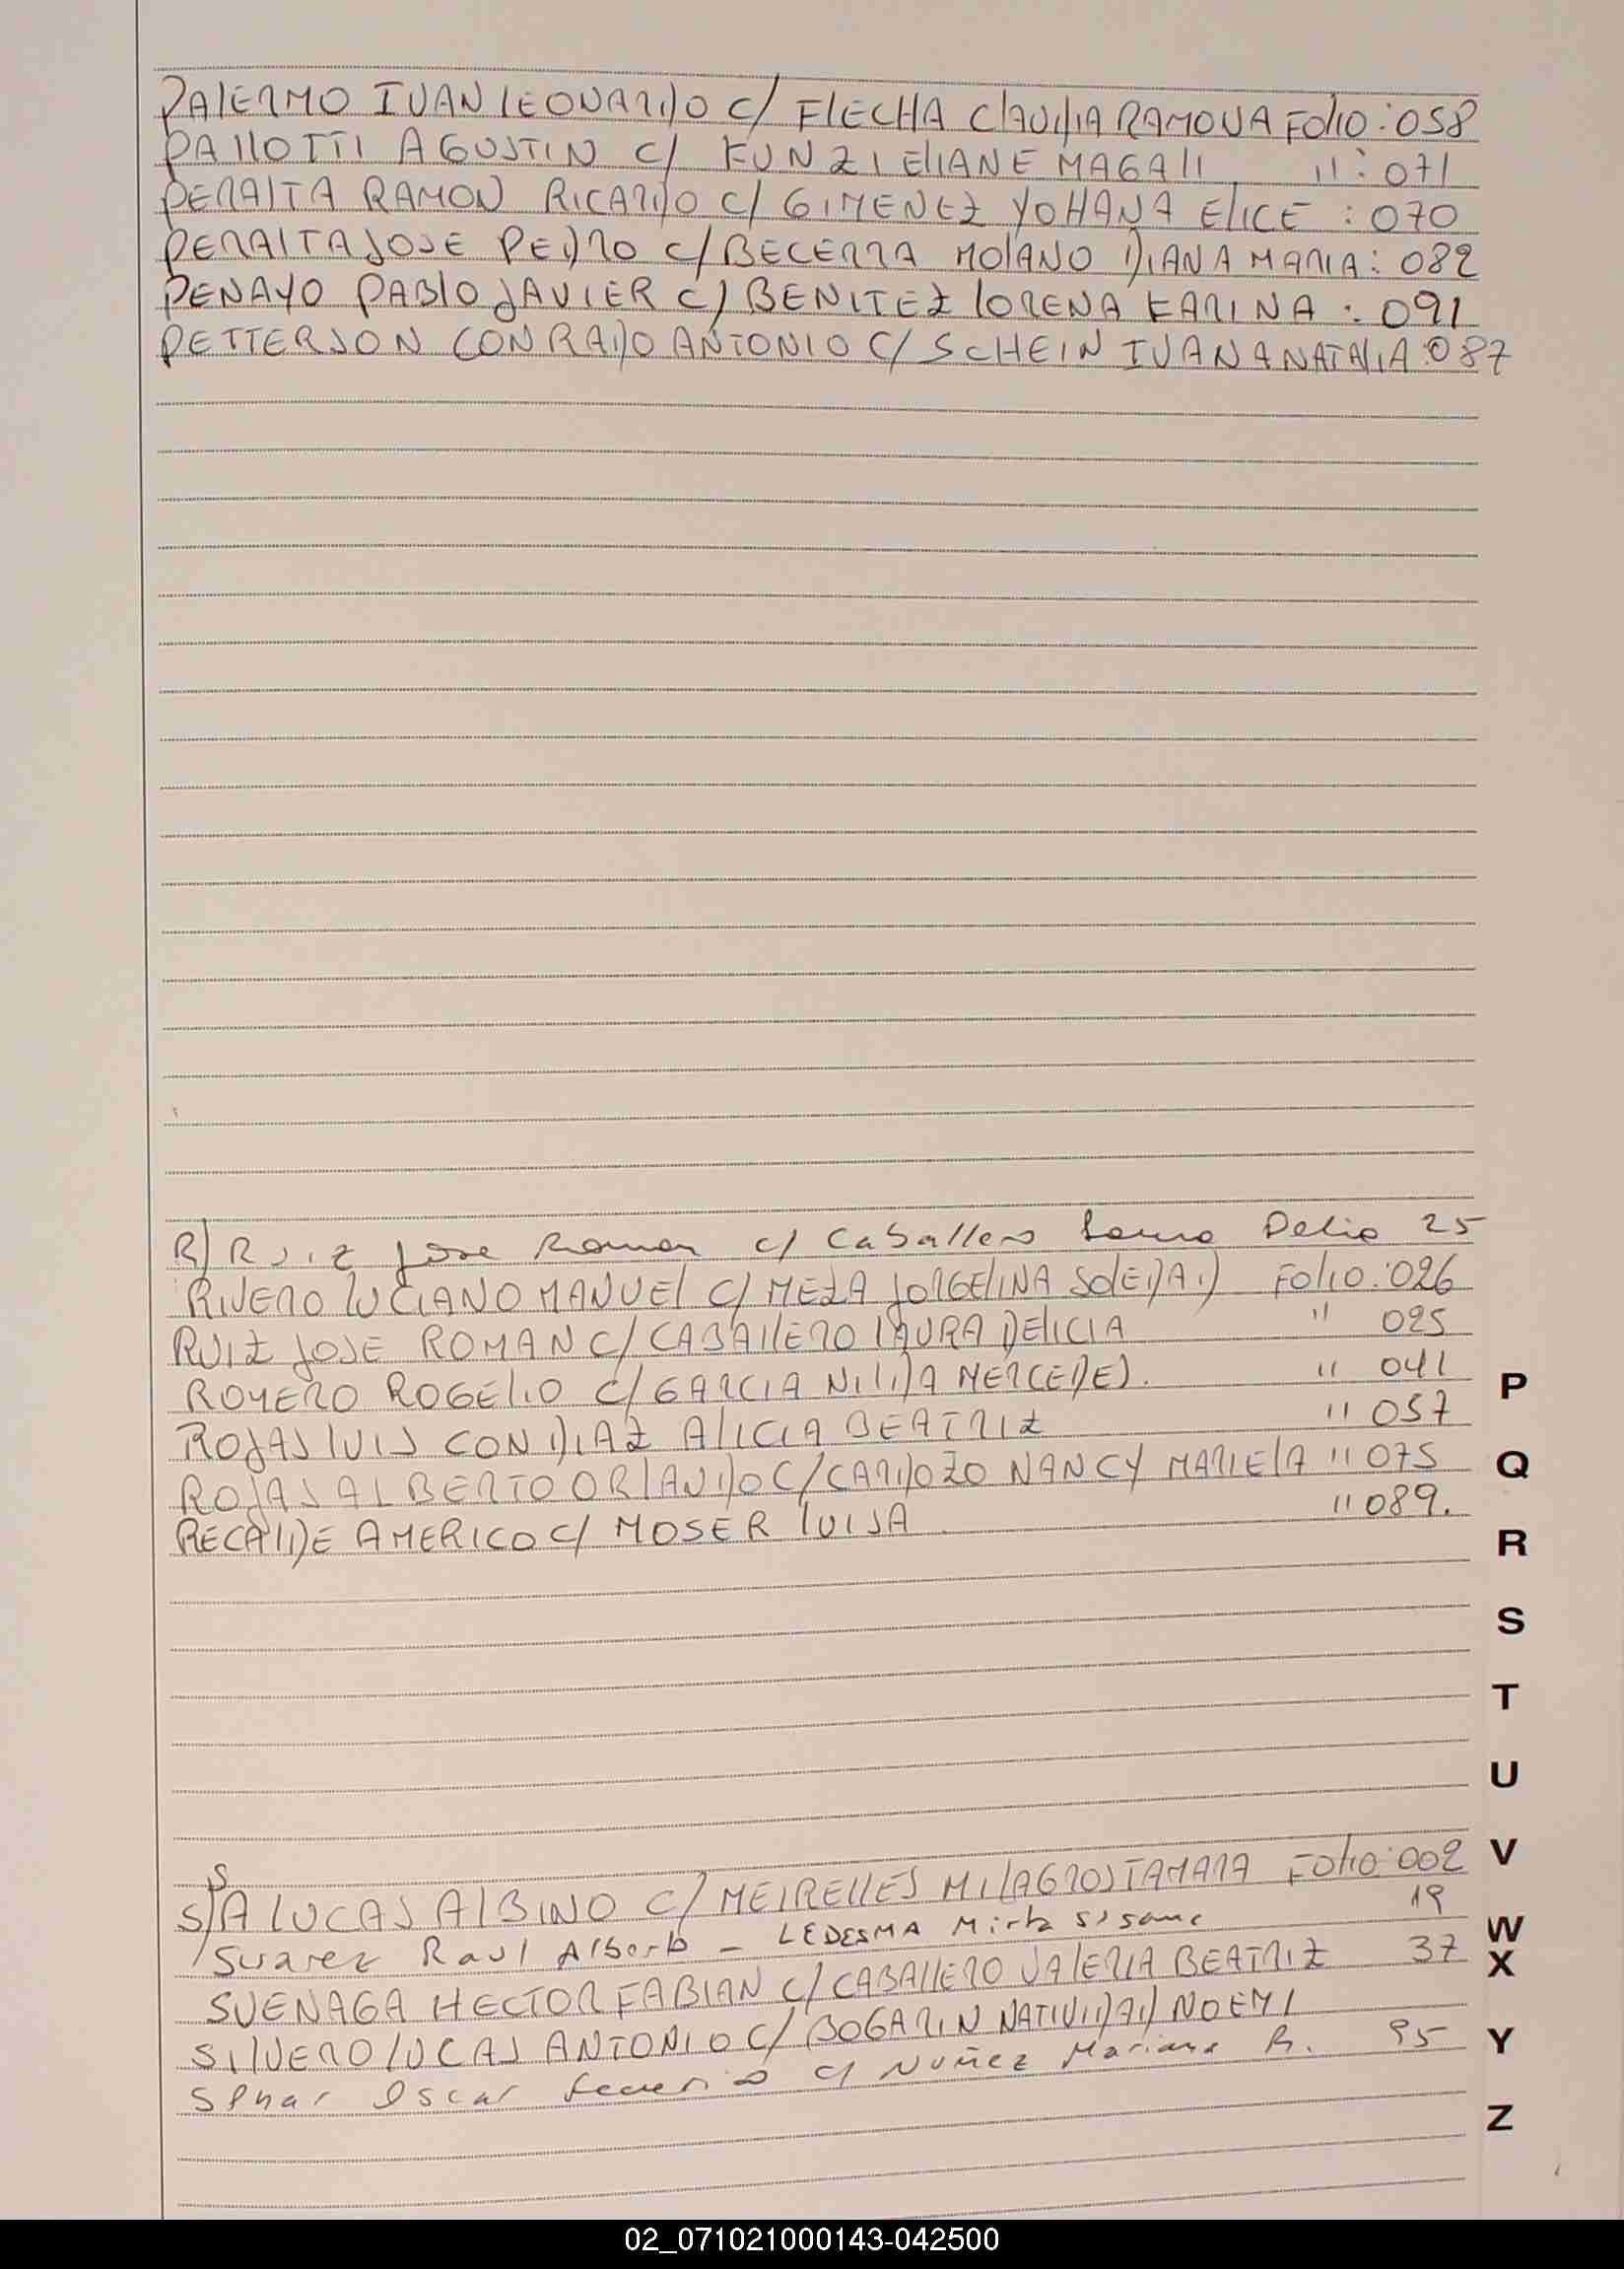 PALERMO IVAN LEONARDO C/ FLECHA CLAUDIA RAMONA FOLIO: 058
PALLOTTI AGUSTIN C/ KUNZI ELIANE MAGALI " : 071
PERALTA RAMON RICARDO C/ GIMENEZ YOHANA ELICE : 070
PERALTA JOSE PEDRO C/ BECERRA MOLANO DIANA MARIA: 082
PENAYO PABLO JAVIER C/ BENITEZ LORENA KARINA : 091
PETTERSON CONRADO ANTONIO C/ SCHEIN IVANA NATALIA: 087
R) Ruiz Jose Roman c/ Caballero Delia 25
RIVERO LUCIANO MANUEL C/ MEZA JORGELINA SOLEDAD FOLIO: 026
RUIZ JOSE ROMAN C/ CABALLERO LAURA DELICIA " 025
ROMERO ROGELIO C/ GARCIA NILDA MERCEDES. " 041
ROJAS LUIS CON DIAZ ALICIA BEATRIZ " 057
ROJAS ALBERTO ORLANDO C/ CARDOZO NANCY MARIELA " 075
RECALDE AMERICO C/ MOSER LUISA " 089.
P
Q
R
S
T
U
V
W
X
Y
Z
S
SA LUCAS ALBINO C/ MEIRELLES MILAGROS TAMARA FOLIO: 002
Suarez Raul Alberto - LEDESMA Mirta Susana 19
SUENAGA HECTOR FABIAN C/ CABALLERO VALERIA BEATRIZ 37
SILVERO LUCAS ANTONIO C/ BOGARIN NATIVIDAD NOEMI
Oscar c/ Nuñez Mariana R. 95
02_071021000143-042500